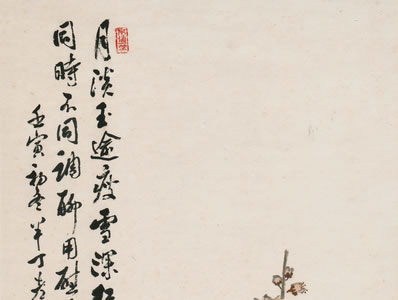 月淡玉逾瘦雪深紅
同時不同調聊用慰
壬寅初冬半丁老